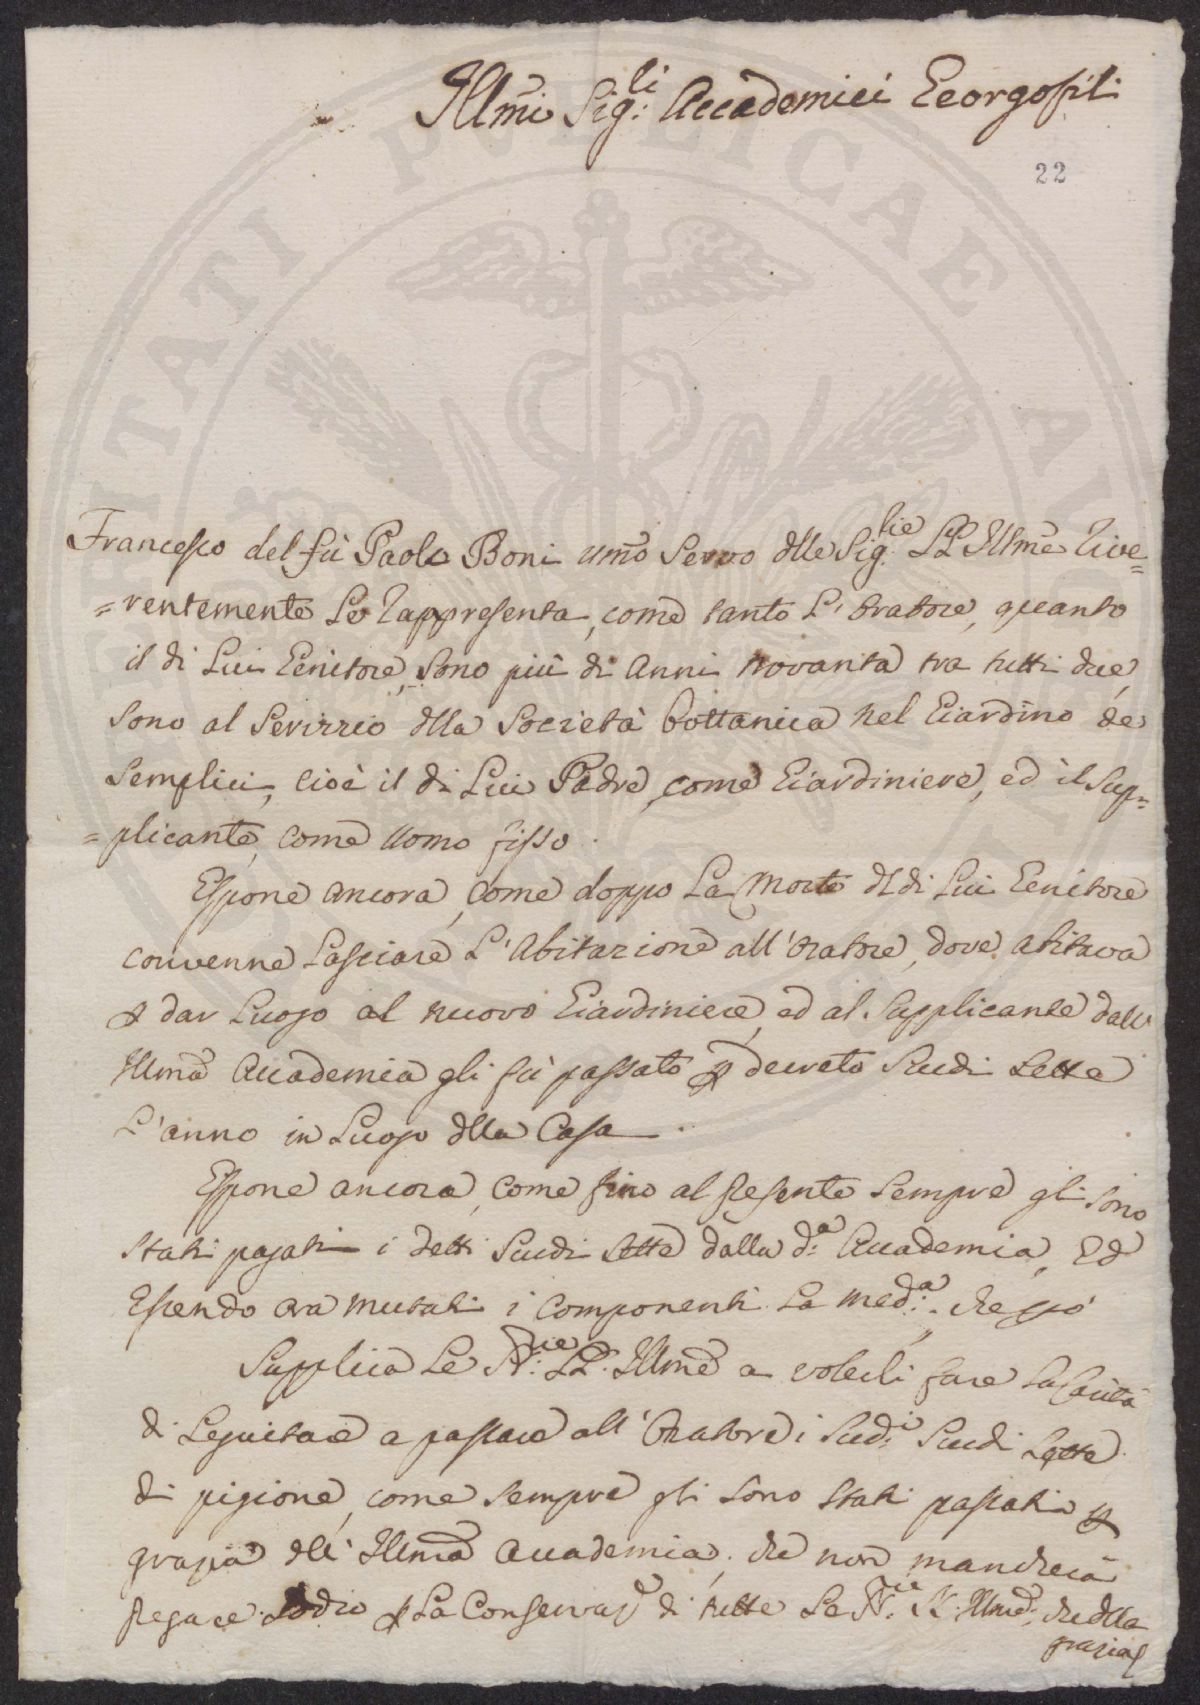 Illmi Sig:li Accademici Georgofili
22
Francesco del fù Paolo Boni umo Servo dlle Sig:rie LL Illme Rive=
=rentemente Le Rappresenta, come tanto L'Oratore, quanto
il di Lui Genitore, sono più di Anni novanta tra tutti due,
sono al Servizzio dlla Società Bottanica nel Giardino de
Semplici, cioè il di Lui Padre, come Giardiniere, ed il Sup=
=plicante, come Uomo fisso.
Espone ancora, come doppo La Morte dl di Lui Genitore
convenne Lasciare L'Abitazione all'Oratore, dove abitava
p dar Luogo al nuovo Giardiniere, ed al Supplicante dall'
Illma Accademia gli fù passato p decreto Scudi Sette
L'anno in Luogo dlla Casa.
Espone ancora, come fino al presente sempre gli sono
stati pagati i detti Scudi Sette dalla d:a Accademia, Ed
Essendo ora mutati i Componenti La med:a, che perciò
Supplica Le LL. Illme a volerli fare La Carità
di Seguitare a passare all'Oratore i Sud:i Scudi Sette
di pigione, come sempre gli sono stati passati p
grazia dll'Illma Accademia, che non mancherà
pregare Iddio p La Conservaz di tutte Le Illme, che dlla
grazia